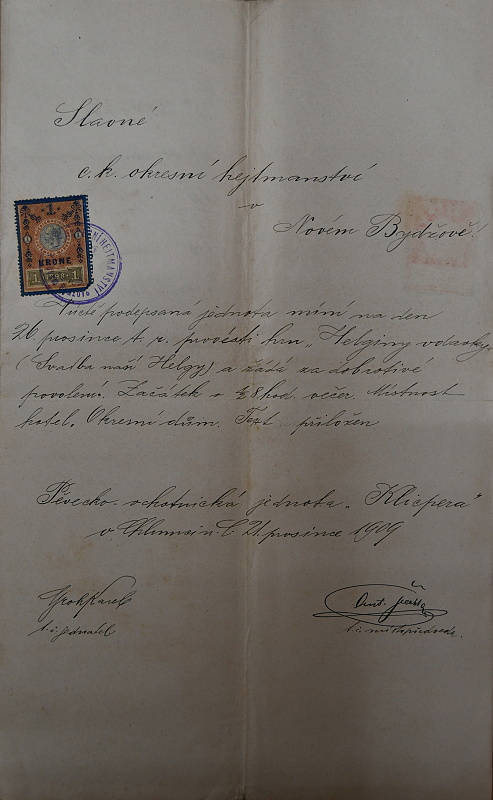 Slavné
c. k. okresní hejtmanství
v
Novém Bydžově!
1
1 1
KRONE
1 1898 1
Úctě podepsaná jednota míní na den
26 prosince t. r. provésti hru „Helginy vdavky"
(Svatba naší Helgy) a žádá za dobrotivé
povolení. Začátek o ½8 hod. večer. Místnost
hotel. Okresní dům. Text přiložen
Pěvecko-ochotnická jednota „Klicpera"
v Chlumci n. C. 21 prosince 1909
Karel
t. č. jednatel
Ant.
t. č. místopředseda.